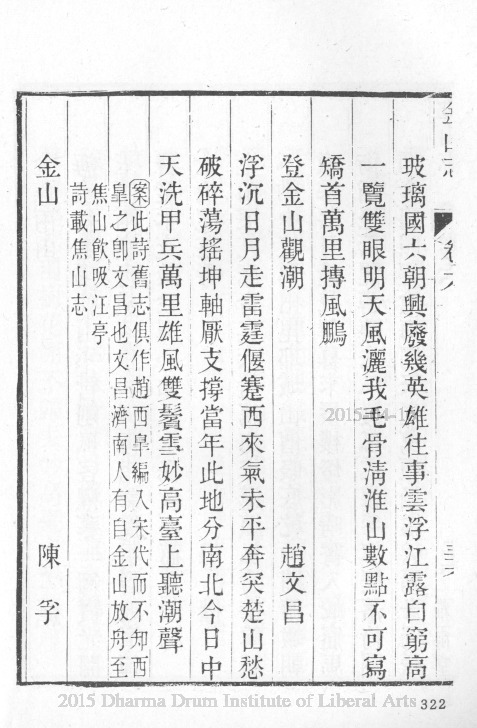 金山志
卷六
玻璃國六朝興廢幾英雄往事雲浮江露白窮高
一覽雙眼明天風灑我毛骨清淮山數點不可寫
矯首萬里摶風鵬
登金山觀潮 趙文昌
浮沉日月走雷霆偃蹇西來氣未平奔突楚山愁
破碎蕩搖坤軸厭支撐當年此地分南北今日中
天洗甲兵萬里雄風雙鬢雪妙高臺上聽潮聲
案此詩舊志俱作趙西臯編入宋代而不知西
臯之卽文昌也文昌濟南人有自金山放舟至
焦山飮吸江亭
詩載焦山志
金山 陳孚
2015 Dharma Drum Institute of Liberal Arts
322